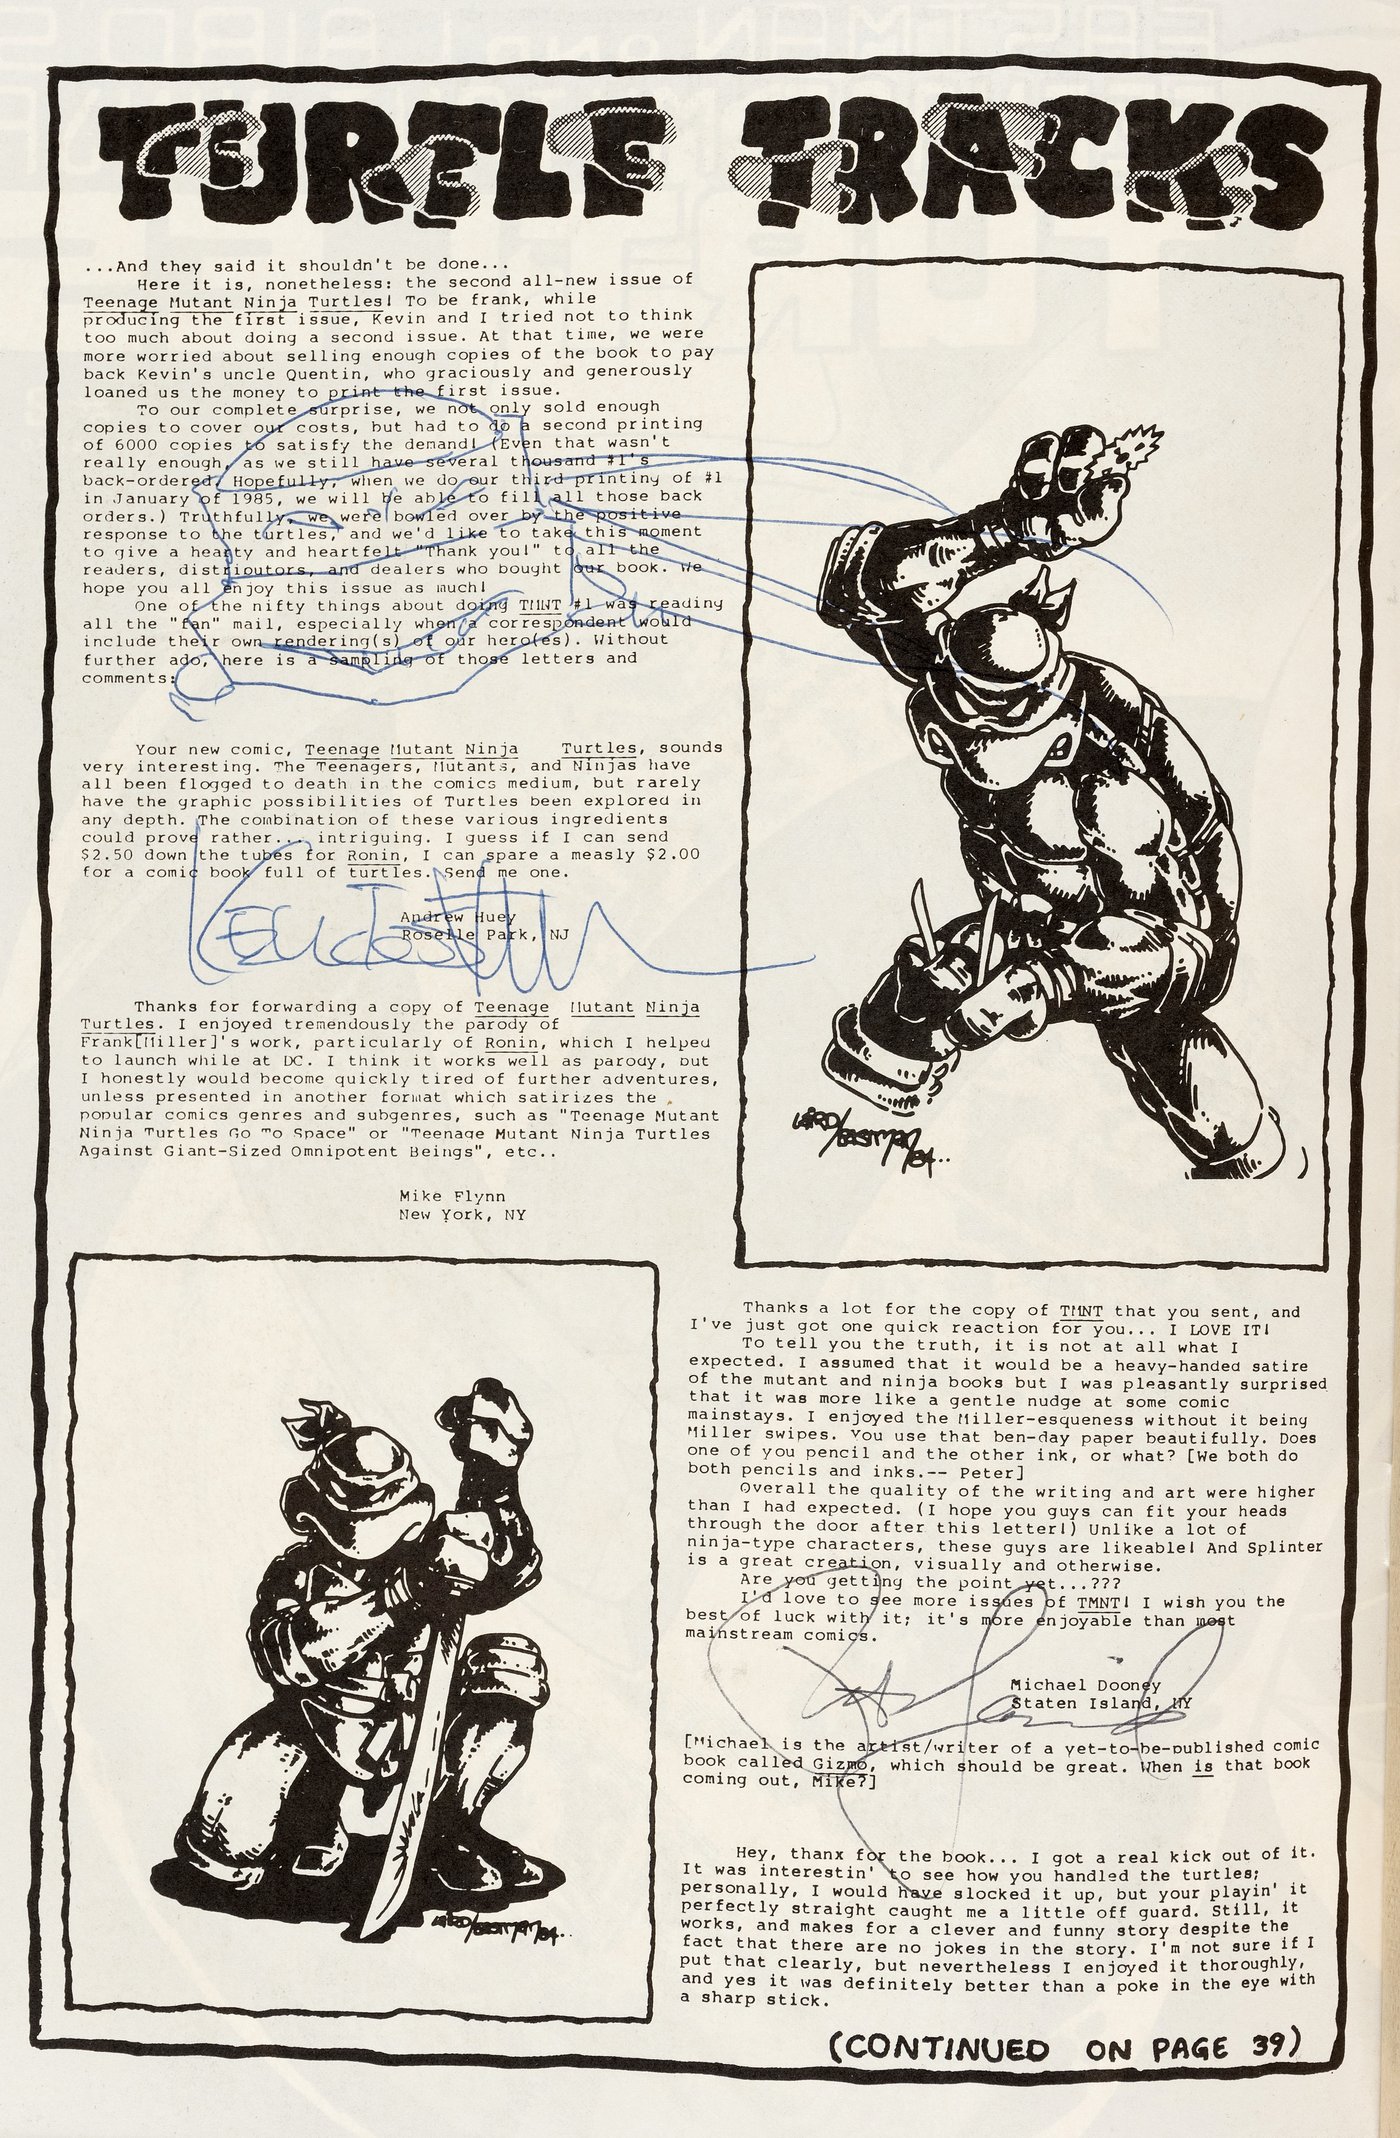 TURTLE TRACKS
...And they said it shouldn't be done...
Here it is, nonetheless: the second all-new issue of
Teenage Mutant Ninja Turtles! To be frank, while
producing the first issue, Kevin and I tried not to think
too much about doing a second issue. At that time, we were
more worried about selling enough copies of the book to pay
back Kevin's uncle Quentin, who graciously and generously
loaned us the money to print the first issue.
To our complete surprise, we not only sold enough
copies to cover our costs, but had to do a second printing
of 6000 copies to satisfy the demand! (Even that wasn't
really enough, as we still have several thousand #1's
back-ordered. Hopefully, when we do our third printing of #1
in January of 1985, we will be able to fill all those back
orders.) Truthfully, we were bowled over by the positive
response to the turtles, and we'd like to take this moment
to give a hearty and heartfelt "Thank you!" to all the
readers, distributors, and dealers who bought our book. We
hope you all enjoy this issue as much!
One of the nifty things about doing TMNT #1 was reading
all the "fan" mail, especially when a correspondent would
include their own rendering(s) of our hero(es). Without
further ado, here is a sampling of those letters and
comments:
Your new comic, Teenage Mutant Ninja Turtles, sounds
very interesting. The Teenagers, Mutants, and Ninjas have
all been flogged to death in the comics medium, but rarely
have the graphic possibilities of Turtles been explored in
any depth. The combination of these various ingredients
could prove rather... intriguing. I guess if I can send
$2.50 down the tubes for Ronin, I can spare a measly $2.00
for a comic book full of turtles. Send me one.
Andrew Huey
Roselle Park, NJ
Thanks for forwarding a copy of Teenage Mutant Ninja
Turtles. I enjoyed tremendously the parody of
Frank[Miller]'s work, particularly of Ronin, which I helped
to launch while at DC. I think it works well as parody, but
I honestly would become quickly tired of further adventures,
unless presented in another format which satirizes the
popular comics genres and subgenres, such as "Teenage Mutant
Ninja Turtles Go To Space" or "Teenage Mutant Ninja Turtles
Against Giant-Sized Omnipotent Beings", etc..
Mike Flynn
New York, NY
LAIRD/EASTMAN/84..
LAIRD/EASTMAN/84...
Thanks a lot for the copy of TMNT that you sent, and
I've just got one quick reaction for you... I LOVE IT!
To tell you the truth, it is not at all what I
expected. I assumed that it would be a heavy-handed satire
of the mutant and ninja books but I was pleasantly surprised
that it was more like a gentle nudge at some comic
mainstays. I enjoyed the Miller-esqueness without it being
Miller swipes. You use that ben-day paper beautifully. Does
one of you pencil and the other ink, or what? [We both do
both pencils and inks.-- Peter]
Overall the quality of the writing and art were higher
than I had expected. (I hope you guys can fit your heads
through the door after this letter!) Unlike a lot of
ninja-type characters, these guys are likeable! And Splinter
is a great creation, visually and otherwise.
Are you getting the point yet...???
I'd love to see more issues of TMNT! I wish you the
best of luck with it; it's more enjoyable than most
mainstream comics.
Michael Dooney
Staten Island, NY
[Michael is the artist/writer of a yet-to-be-published comic
book called Gizmo, which should be great. When is that book
coming out, Mike?]
Hey, thanx for the book... I got a real kick out of it.
It was interestin' to see how you handled the turtles;
personally, I would have slocked it up, but your playin' it
perfectly straight caught me a little off guard. Still, it
works, and makes for a clever and funny story despite the
fact that there are no jokes in the story. I'm not sure if I
put that clearly, but nevertheless I enjoyed it thoroughly,
and yes it was definitely better than a poke in the eye with
a sharp stick.
(CONTINUED ON PAGE 39)